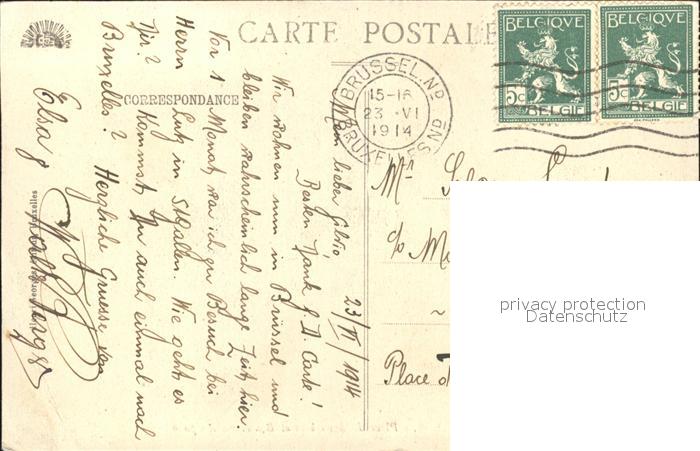 CARTE POSTALE
CORRESPONDANCE
BELGIQVE
5c
BELGIE
BELGIQVE
5c
BELGIE
BRUSSEL. Nd
15-16
23 VI
1914
BRUXELLES. Nd
23/VI/1914
Mein lieber Silvio
Besten Dank f. D. Carte!
Wir wohnen nun in Brüssel und
bleiben wahrscheinlich lange Zeit hier.
Vor 1 Monat war ich zu Besuch bei
Herrn Lutz in St Gallen. Wie geht es
Dir? Kommst Du auch einmal nach
Bruxelles? Herzliche Gruesse von
Elsa
Mr
c/o
Place
privacy protection
Datenschutz